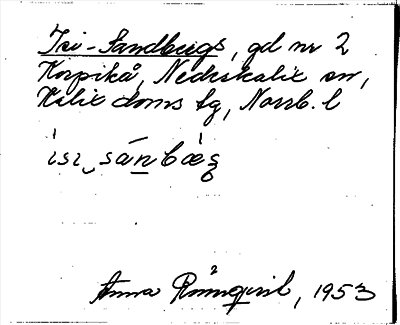 Isi-Sandbergs, gd nr 2
Korpikå, Nederkalix sn,
Kalix doms lg, Norrb. l
Anna Rönnqvist, 1953